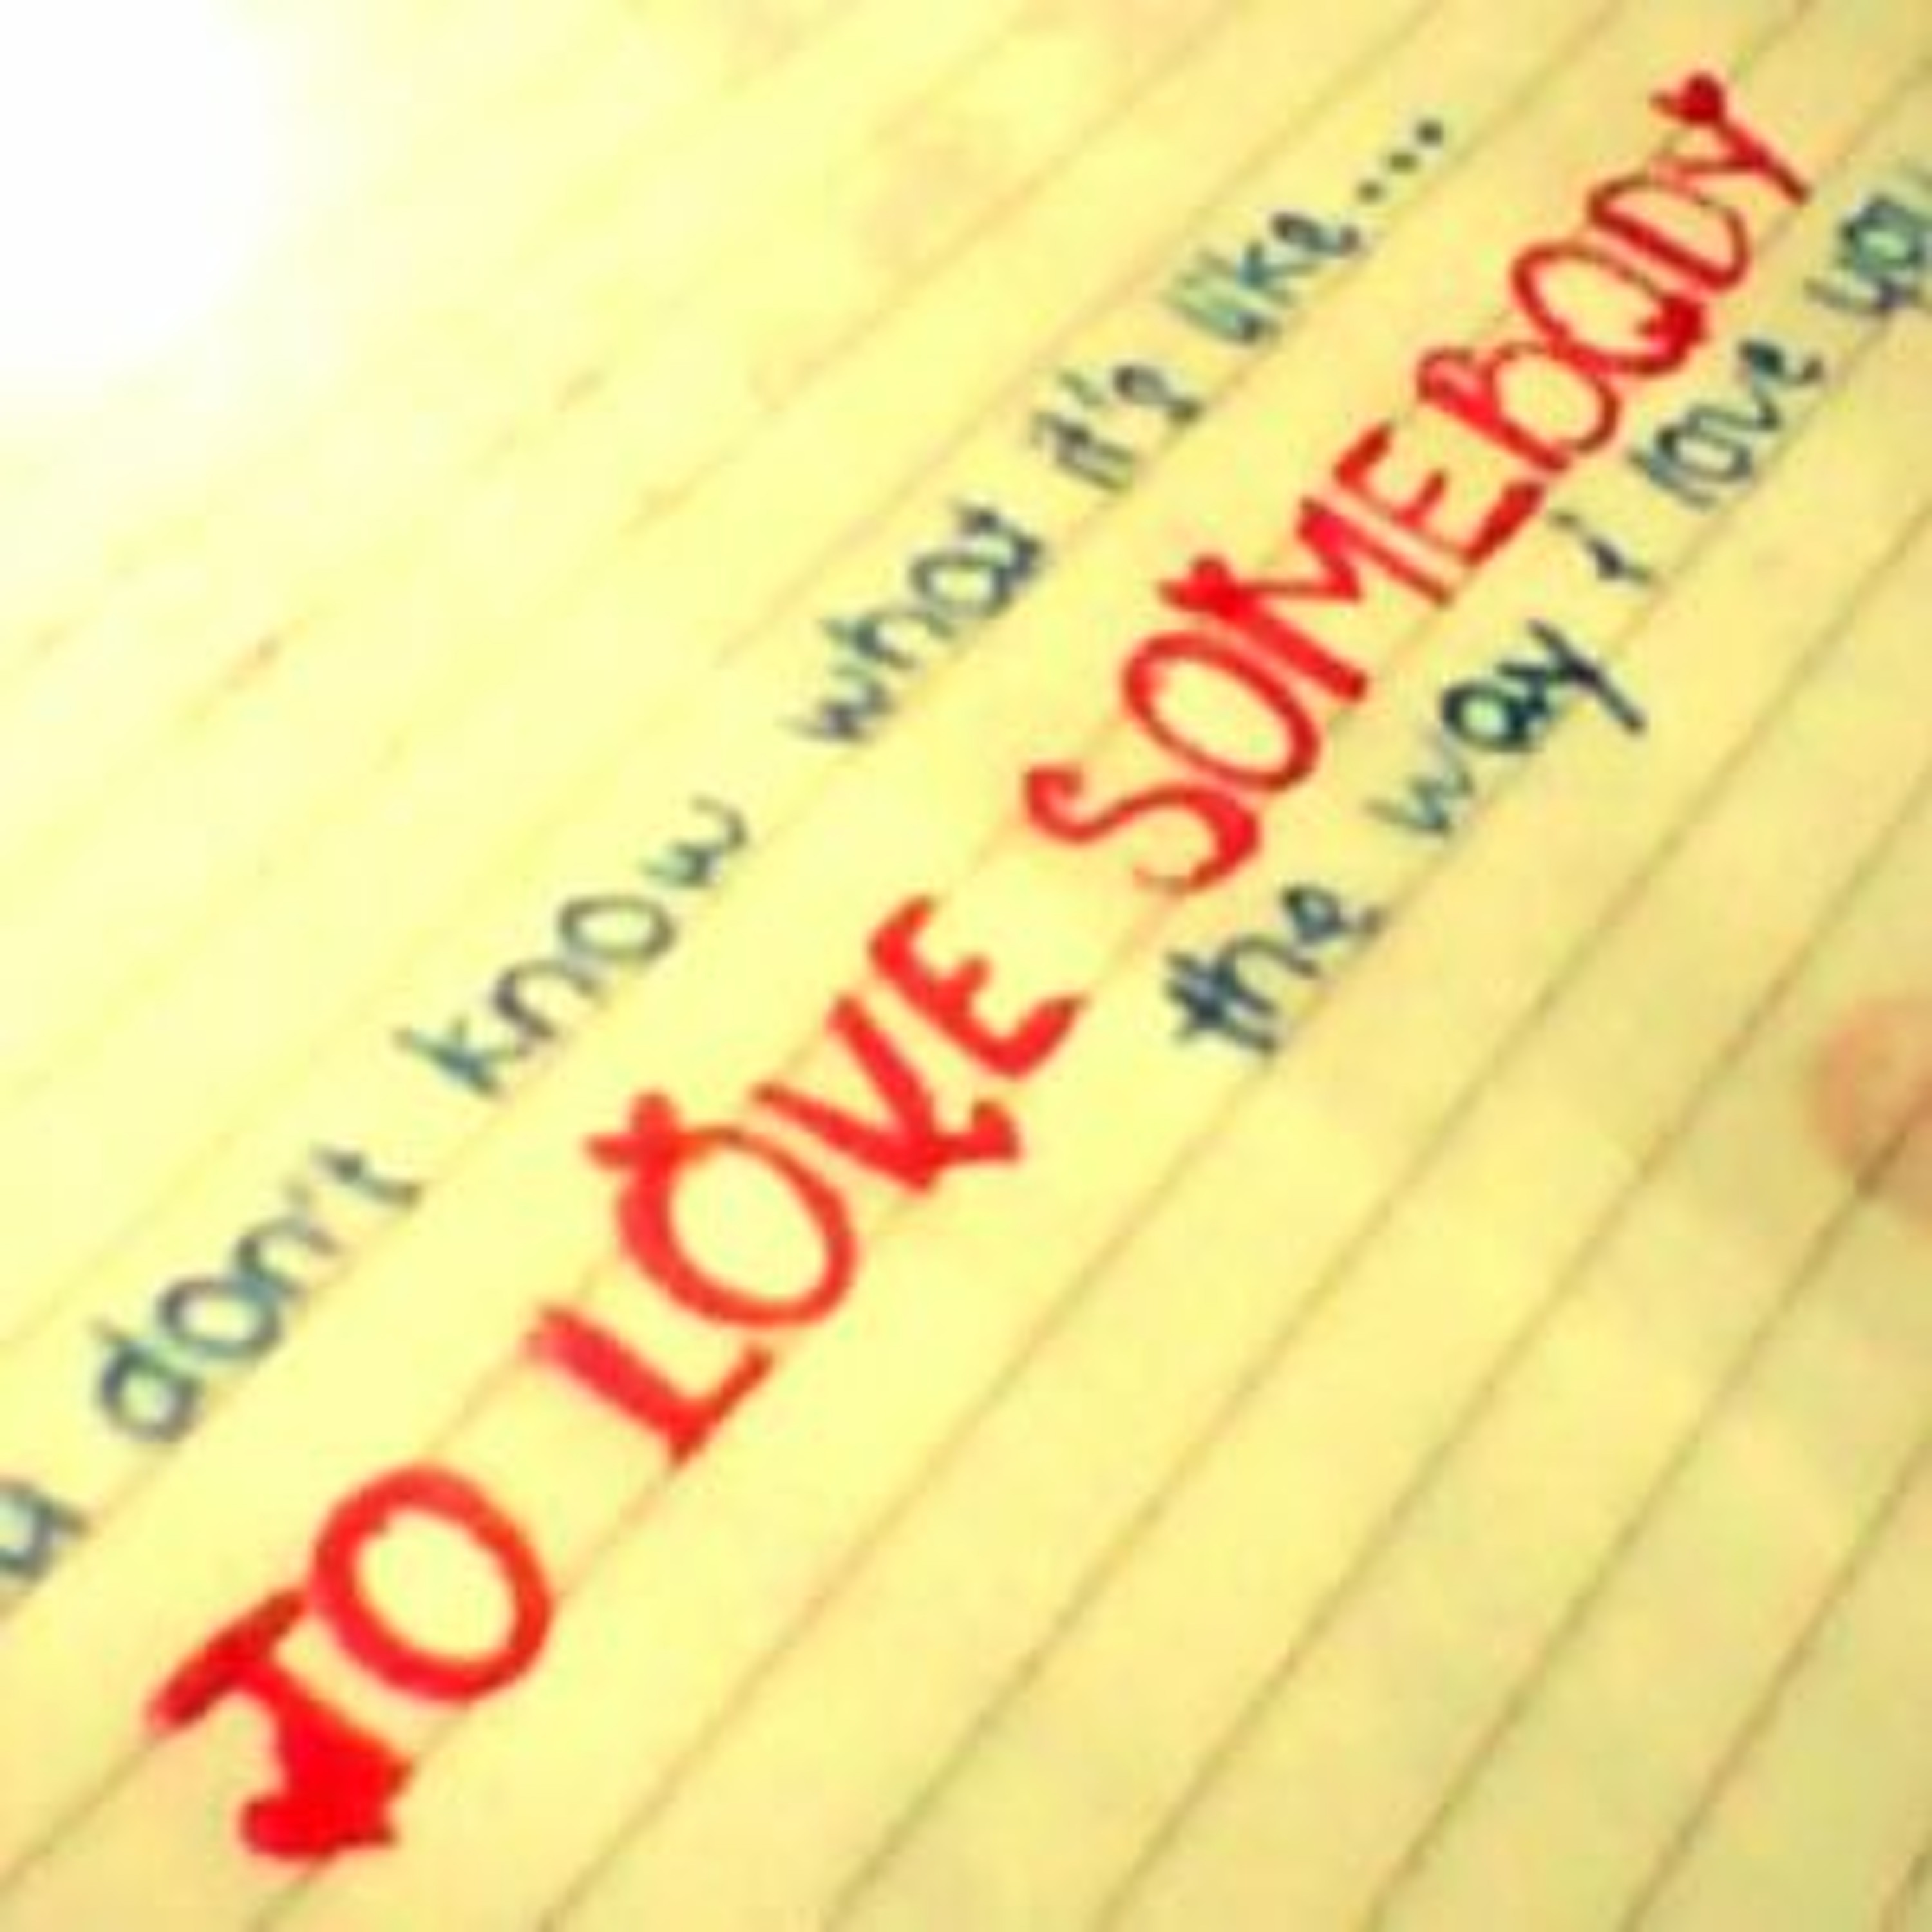 don't know what it's like....
TO LOVE SOMEBODY
the way i love you